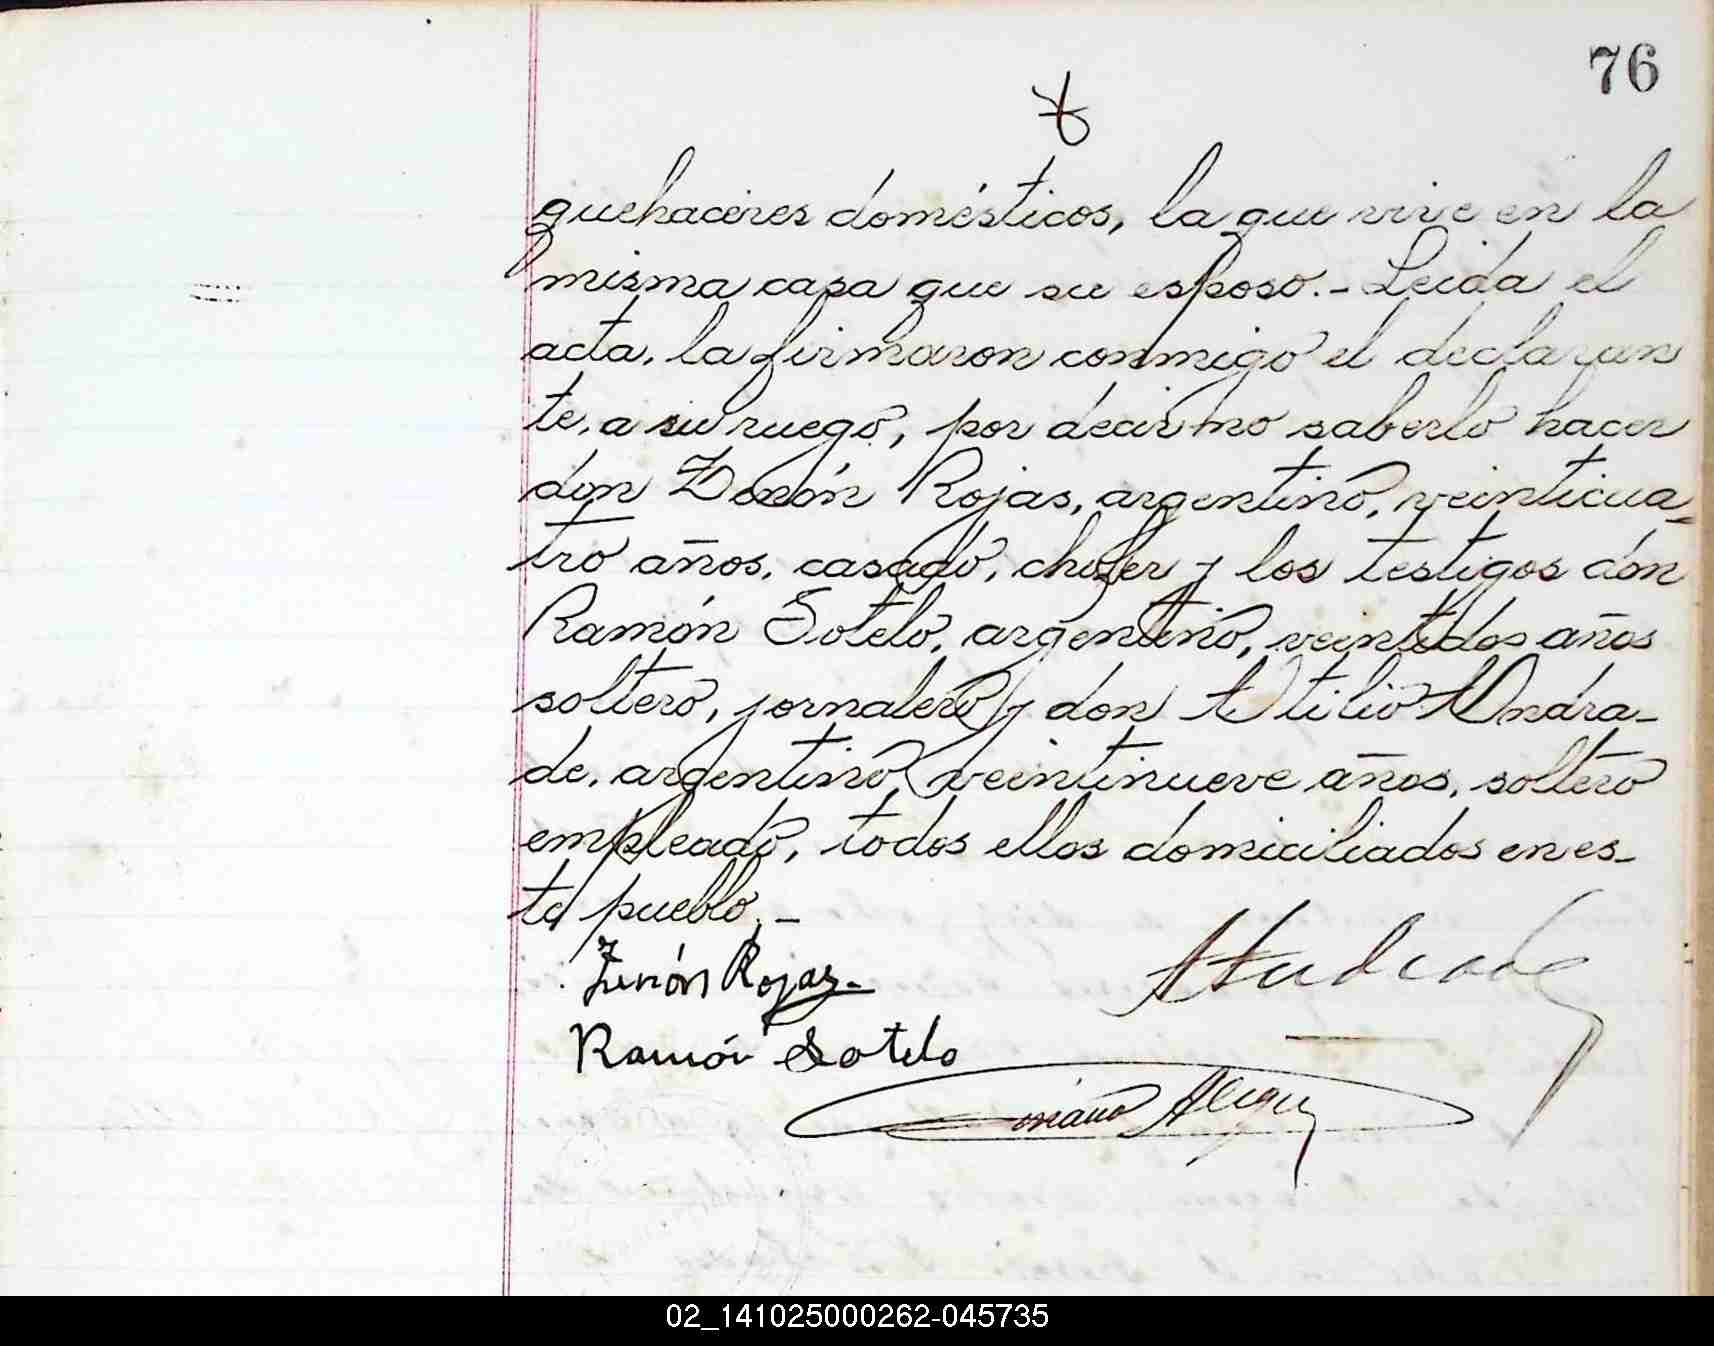 76
quehaceres domésticos, la que vive en la
misma casa que su esposo.- Leida el
acta, la firmaron conmigo el declaran
te, a su ruego, por decir no saberlo hacer
don Zenón Rojas, argentino, veinticua-
tro años, casado, chofer y los testigos don
Ramón Sotelo, argentino, veintidos años
soltero, jornalero y don Atilio Andra-
de, argentino, veintinueve años, soltero
empleado, todos ellos domiciliados en es-
te pueblo.-
Zenón Rojas.-
AAndrade
Ramón Sotelo
02_141025000262-045735